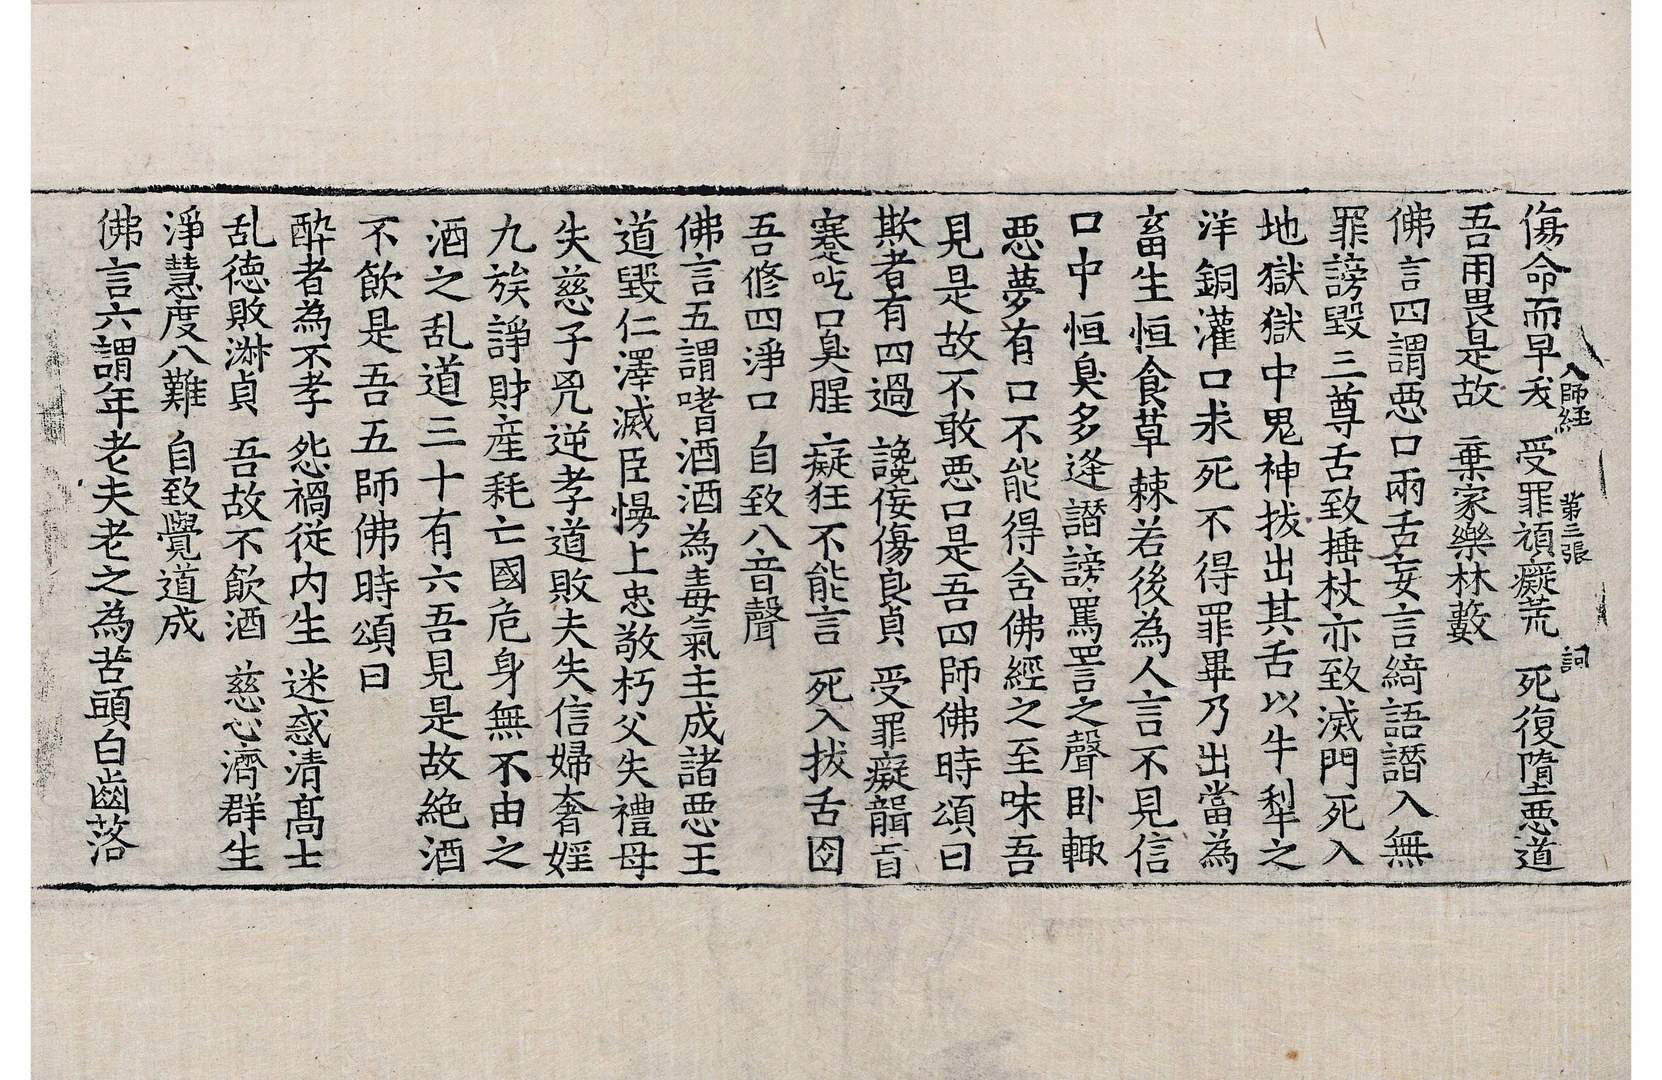 八師経 第三張 詞
傷命而早夭 受罪頑癡荒 死復墮惡道
吾用畏是故 棄家樂林藪
佛言四謂惡口兩舌妄言綺語譖入無
罪謗毀三尊舌致捶杖亦致滅門死入
地獄獄中鬼神拔出其舌以牛犁之
洋銅灌口求死不得罪畢乃出當為
畜生恒食草棘若後為人言不見信
口中恒臭多逢譖謗罵詈之聲卧輙
惡夢有口不能得含佛經之至味吾
見是故不敢惡口是吾四師佛時頌曰
欺者有四過 讒侫傷良貞 受罪癡聾盲
蹇吃口臭腥 癡狂不能言 死入拔舌囹
吾修四淨口 自致八音聲
佛言五謂嗜酒酒為毒氣主成諸惡王
道毀仁澤滅臣慢上忠敬朽父失禮母
失慈子兇逆孝道敗夫失信婦奢婬
九族諍財産耗亡國危身無不由之
酒之乱道三十有六吾見是故絶酒
不飲是吾五師佛時頌曰
醉者為不孝 怨禍從内生 迷惑清髙士
乱德敗淋貞 吾故不飲酒 慈心濟群生
淨慧度八難 自致覺道成
佛言六謂年老夫老之為苦頭白齒落